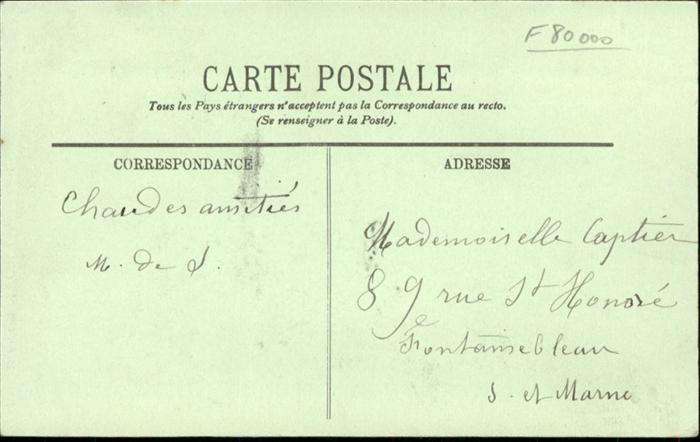 F 80000
CARTE POSTALE
Tous les Pays étrangers n'acceptent pas la Correspondance au recto.
(Se renseigner à la Poste).
CORRESPONDANCE
Chaudes amitiés
M. de S.
ADRESSE
Mademoiselle Captier
89 rue St Honoré
Fontainebleau
S. et Marne